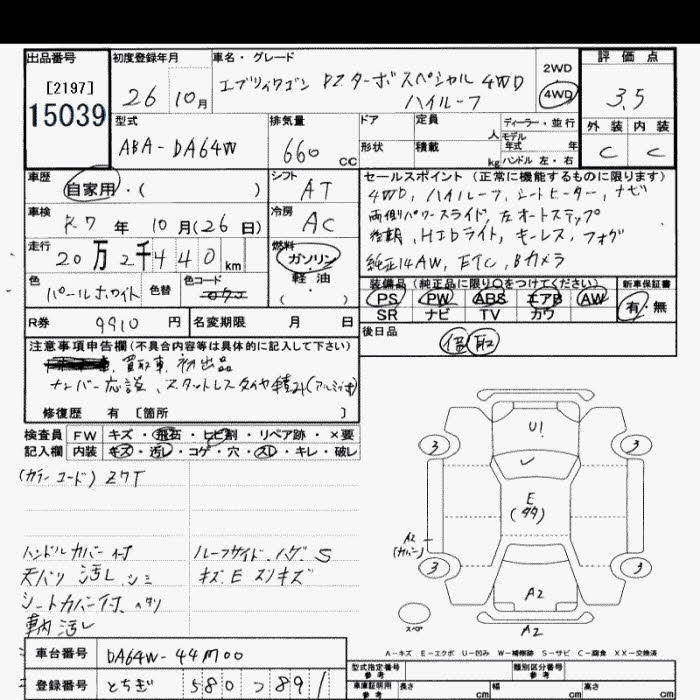 出品番号
[2197]
15039
初度登録年月
26 10月
車名・グレード
エブリィワゴン PZターボスペシャル 4WD
ハイルーフ
2WD
4WD
評価点
3.5
外装 内装
C C
型式
ABA-DA64W
排気量
660 cc
ドア
形状
定員
人
積載
kg
ディーラー・並行
モデル
年式 年
ハンドル 左・右
車歴
自家用・( )
シフト
AT
セールスポイント（正常に機能するものに限ります）
4WD, ハイルーフ, シートヒーター, ナビ
両側パワースライド, 左オートステップ
HIDライト, キーレス, フォグ
純正14AW, ETC, Bカメラ
車検
R7 年 10 月(26 日)
冷房
AC
走行
20万2千440km
燃料
ガソリン
軽油
( )
色
パールホワイト
色替
色コード
装備品（純正品に限り○をつけてください）
PS PW ABS エアB AW
SR ナビ TV カワ
新車保証書
有・無
R券 9910 円
名変期限 月 日
後日品
保 取
注意事項申告欄（不具合内容等は具体的に記入して下さい）
買取車, 初出品
ナンバー応談, スタットレスタイヤ積み(アルミ付)
修復歴 有 [箇所 ]
検査員
記入欄
FW キズ・飛石・ヒビ割・リペア跡・×要
内装 キズ・汚レ・コゲ・穴・スレ・キレ・破レ
(カラーコード) Z7T
ハンドルカバー付
天バリ 汚レ, シミ
シートカバー付, ヘタリ
車内汚レ
ルーフサイド, ハゲ, S
キズ E スリキズ
U1
3 3
E
(44)
A2
(カバン)
3 3
A2
スペア
A2
A-キズ E-エクボ U-凹み W-補修跡 S-サビ C-腐食 XX-交換済
車台番号 DA64W-44M00
登録番号 とちぎ 580 つ 891
型式指定番号
参考
類別区分番号
参考
車庫証明用
参考
長さ cm 幅 cm 高さ cm